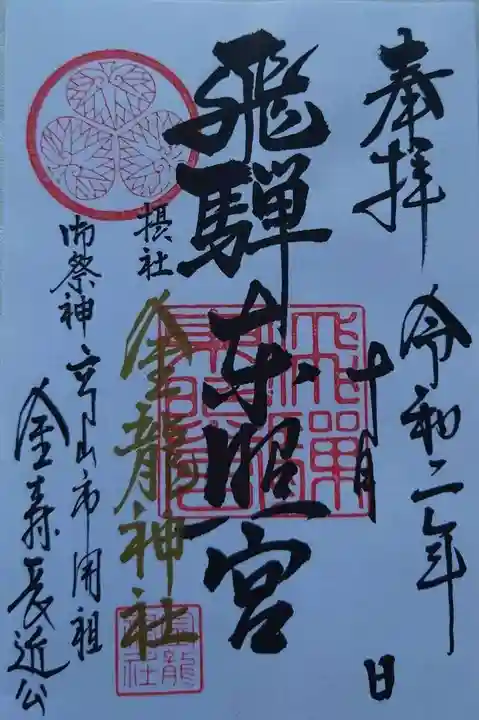 奉拝
令和二年
十月
日
飛騨東照宮
飛騨東照宮
摂社
金龍神社
金龍神社
御祭神 高山市開祖
金森長近公